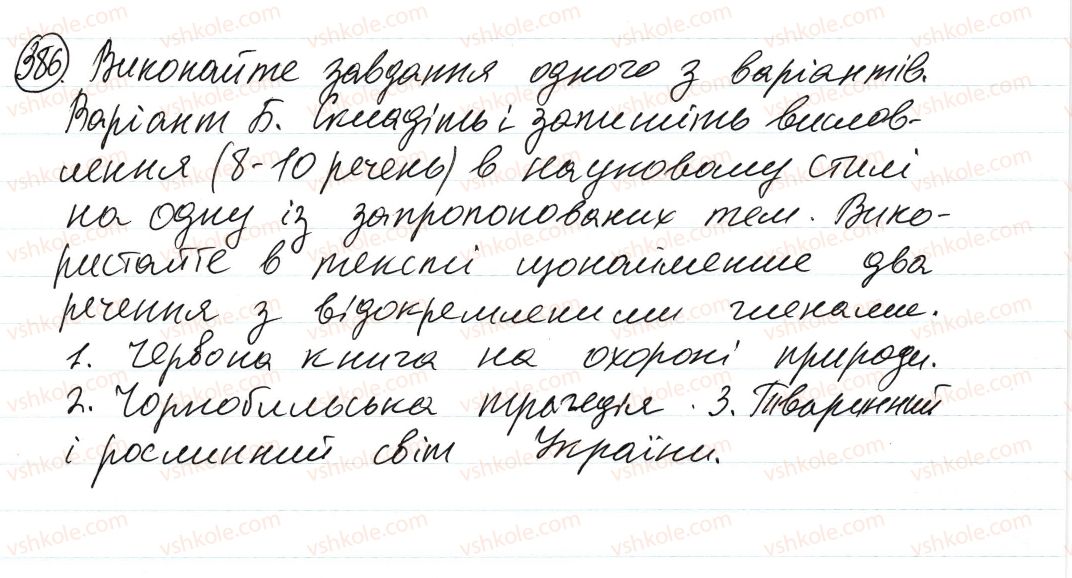 386. Виконайте завдання одного з варіантів.
Варіант Б. Складіть і запишіть вислов-
лення (8-10 речень) в науковому стилі
на одну із запропонованих тем. Вико-
ристайте в тексті щонайменше два
речення з відокремленими членами.
1. Червона книга на охороні природи.
2. Чорнобильська трагедія. 3. Тваринний
і рослинний світ України.